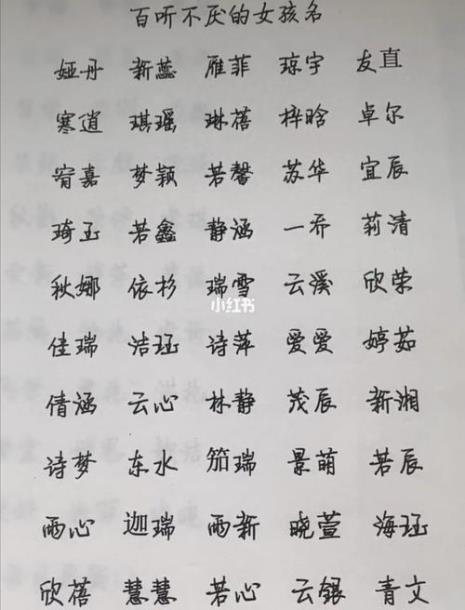 百听不厌的女孩名
娅丹 新蕊 雁菲 琼宇 友直
寒逍 琪瑶 琳蓓 梓晗 卓尔
宥嘉 梦颖 若馨 苏华 宜辰
琦玉 若鑫 静涵 一乔 莉清
秋娜 依杉 瑞雪 云溪 欣荣
小红书
佳瑞 洁珏 诗萍 爱爱 婷茹
倩涵 云心 林静 茂辰 新湘
诗梦 东水 笳瑞 景萌 若辰
雨心 迦瑞 雨新 晓萱 海珏
欣蓓 慧慧 若心 云银 青文